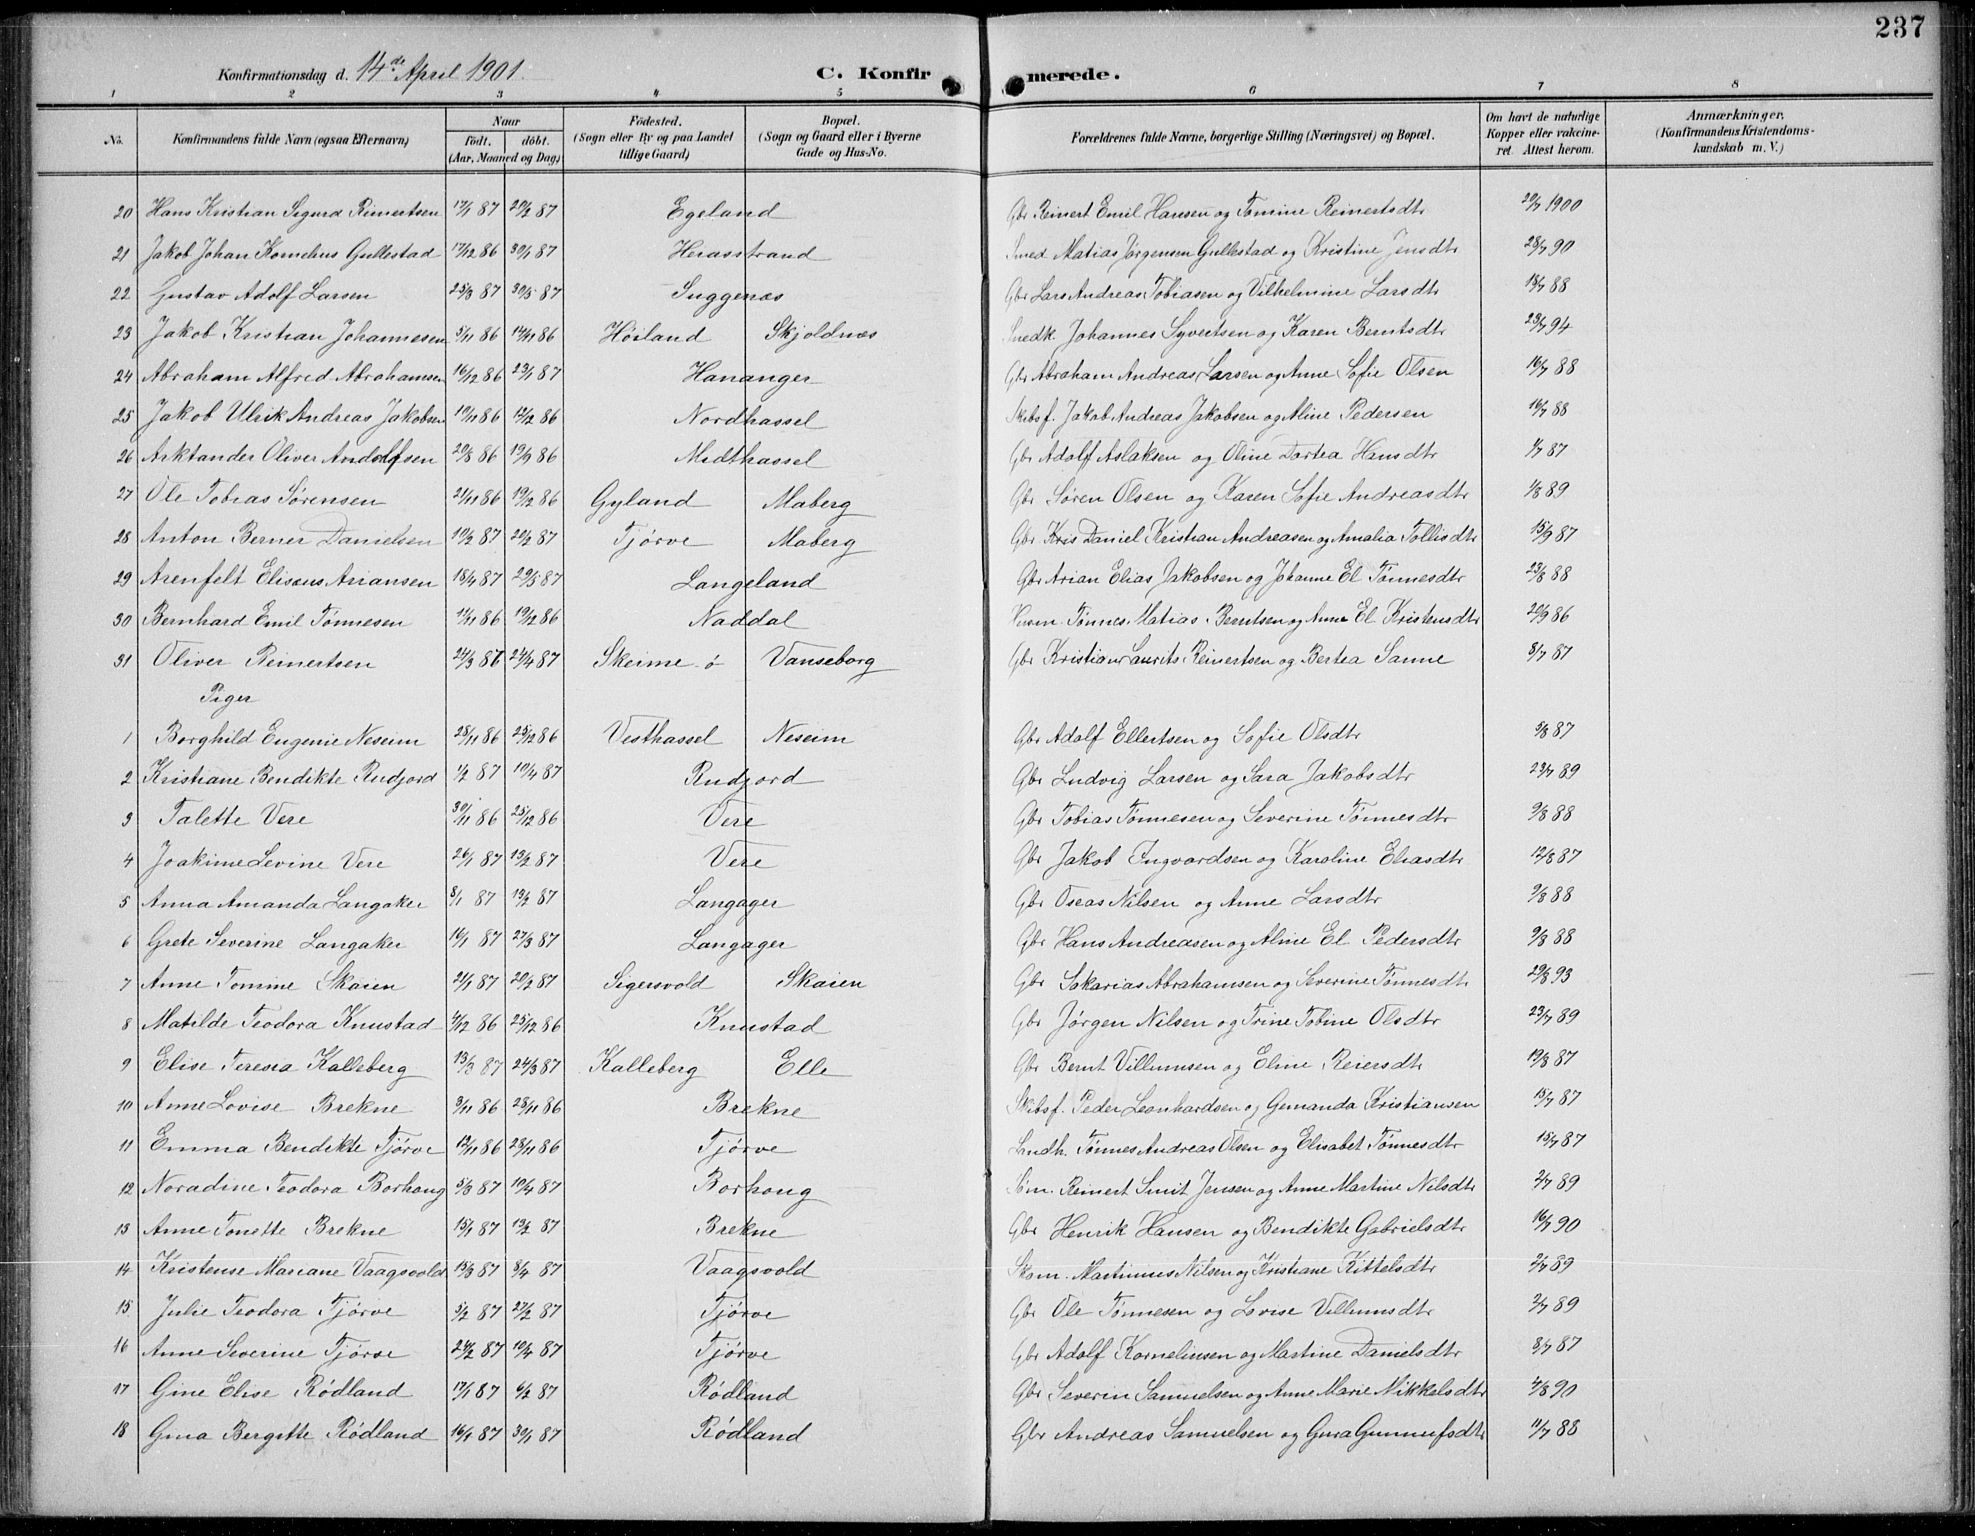 237
Konfirmationsdag d. 14de April 1901. C. Konfirmerede.
1 2 3 4 5 6 7 8
No. Konfirmandens fulde Navn (ogsaa Efternavn) Naar født. døbt. (Aar, Maaned og Dag) Fødested. (Sogn eller By og paa Landet tillige Gaard) Bopæl. (Sogn og Gaard eller i Byerne Gade og Hus-No. Forældrenes fulde Navne, borgerlige Stilling (Næringsvei) og Bopæl. Om havt de naturlige Kopper eller vakcineret. Attest herom. Anmærkninger. (Konfirmandens Kristendomskundskab m. V.)
20 Hans Kristian Sigurd Reinertsen 17/1 87 20/2 87 Egeland Gbr Reinert Emil Hansen og Tomine Reinertsdtr 20/7 1900
21 Jakob Johan Kornelius Gullestad 17/12 86 30/1 87 Herasstrand Smed Matias Jørgensen Gullestad og Kristine Jensdtr 28/7 90
22 Gustav Adolf Larsen 23/3 87 30/5 87 Suggenæs Gbr Lars Andreas Tobiasen og Vilhelmine Larsdtr 13/7 88
23 Jakob Kristian Johannesen 5/11 86 14/11 86 Høiland Skjoldnæs Snedk. Johannes Syvertsen og Karen Berntsdtr 23/7 94
24 Abraham Alfred Abrahamsen 16/12 86 23/1 87 Hananger Gbr Abraham Andreas Larsen og Anne Sofie Olsen 16/7 88
25 Jakob Ulrik Andreas Jakobsen 10/11 86 12/12 86 Nordhassel Skibsf. Jakob Andreas Jakobsen og Aline Pedersen 16/7 88
26 Arktander Oliver Andolfsen 20/8 86 19/9 86 Midthassel Gbr Adolf Aslaksen og Oline Dortea Hansdtr 1/7 87
27 Ole Tobias Sørensen 21/11 86 19/12 86 Gyland Maberg Gbr Søren Olsen og Karen Sofie Andreasdtr 1/8 89
28 Anton Berner Danielsen 10/2 87 20/2 87 Tjørve Maberg Gbr Kris Daniel Kristian Andreasen og Amalia Tollisdtr 15/9 87
29 Arenfelt Eliseus Ariansen 18/4 87 29/5 87 Langeland Gbr Arian Elias Jakobsen og Johanne El Tønnesdtr 23/8 88
30 Bernhard Emil Tønnesen 11/11 86 19/12 86 Naddal Husm Tønnes Matias Berntsen og Anne El Kristensdtr 20/9 86
31 Oliver Reinertsen 24/3 87 24/4 87 Skeime ø Vanseborg Gbr Kristian Laurits Reinertsen og Bertea Sanne 8/7 87
Piger
1 Borghild Eugenie Neseim 28/11 86 25/12 86 Vesthassel Neseim Gbr Adolf Ellertsen og Sofie Olsdtr 5/8 87
2 Kristiane Bendikte Rudjord 1/2 87 10/4 87 Rudjord Gbr Ludvig Larsen og Sara Jakobsdtr 23/7 89
3 Talette Vere 30/11 86 25/12 86 Vere Gbr Tobias Tønnesen og Severine Tønnesdtr 9/8 88
4 Joakime Levine Vere 26/1 87 13/2 87 Vere Gbr Jakob Ingvardsen og Karoline Eliasdtr 12/8 87
5 Anna Amanda Langaker 8/1 87 13/2 87 Langager Gbr Oseas Nilsen og Anne Larsdtr 9/8 88
6 Grete Severine Langaker 16/1 87 27/3 87 Langager Gbr Hans Andreasen og Aline El Pedersdtr 9/8 88
7 Anne Tomine Skaien 21/1 87 20/2 87 Sigersvold Skaien Gbr Sakarias Abrahamsen og Severine Tønnesdtr 29/8 93
8 Matilde Teodora Knustad 4/12 86 25/12 86 Knustad Gbr Jørgen Nilsen og Trine Tobine Olsdtr 23/7 89
9 Elise Teresia Kalleberg 13/3 87 24/3 87 Kalleberg Elle Gbr Bernt Villumsen og Eline Reiersdtr 19/8 87
10 Anne Lovise Brekne 3/11 86 28/11 86 Brekne Skibsf. Peder Leonhardsen og Gemanda Kristiansen 15/7 87
11 Emma Bendikte Tjørve 12/11 86 28/11 86 Tjørve Landh. Tønnes Andreas Olsen og Elisabet Tønnesdtr 15/7 87
12 Noradine Teodora Borhoug 5/3 87 10/4 87 Borhoug Søm. Reinert Smit Jensen og Anne Martine Nilsdtr 2/7 89
13 Anne Tonette Brekne 15/1 87 13/2 87 Brekne Gbr Henrik Hansen og Bendikte Gabrielsdtr 16/7 90
14 Kristense Mariane Vaagsvold 13/3 87 8/4 87 Vaagsvold Skom. Martinius Nilsen og Kristiane Kittelsdtr 2/7 89
15 Julie Teodora Tjørve 5/2 87 27/2 87 Tjørve Gbr Ole Tønnesen og Lovise Villumsdtr 2/7 89
16 Anne Severine Tjørve 24/2 87 10/4 87 Tjørve Gbr Adolf Korneliusen og Martine Danielsdtr 8/7 87
17 Gine Elise Rødland 17/1 87 6/2 87 Rødland Gbr Severin Samuelsen og Anne Marie Nikkelsdtr 4/8 90
18 Gina Bergitte Rødland 16/1 87 30/1 87 Rødland Gbr Andreas Samuelsen og Gura Gunnufsdtr 11/7 88